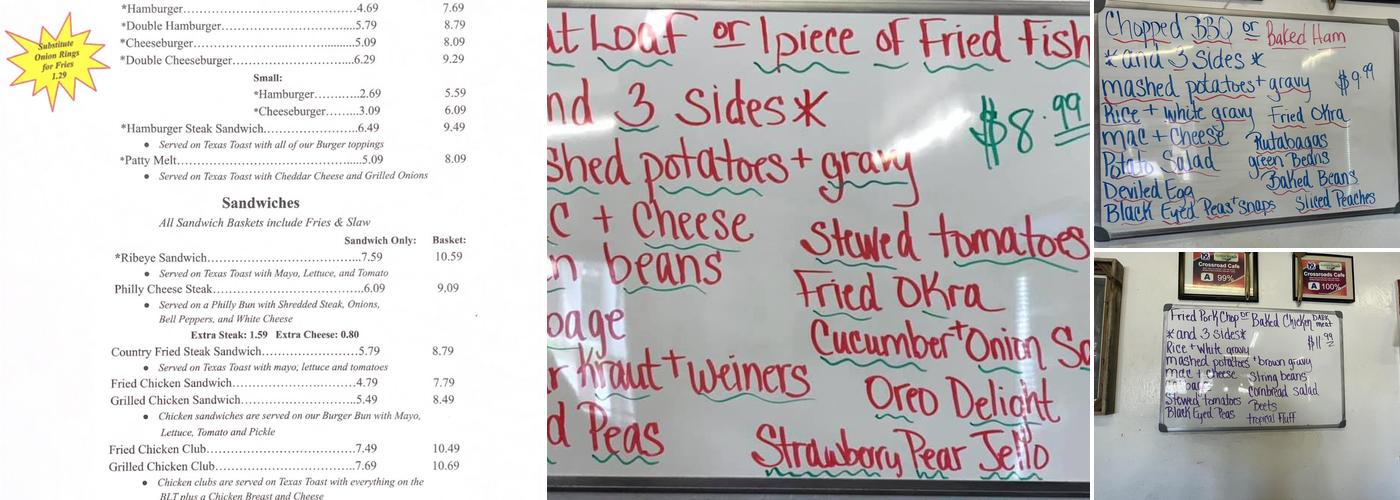 *Hamburger.............................................4.69 7.69
*Double Hamburger................................5.79 8.79
*Cheeseburger..........................................5.09 8.09
*Double Cheeseburger.............................6.29 9.29
Substitute
Onion Rings
for Fries
1.29
Small:
*Hamburger..........2.69 5.59
*Cheeseburger.......3.09 6.09
*Hamburger Steak Sandwich....................6.49 9.49
● Served on Texas Toast with all of our Burger toppings
*Patty Melt................................................5.09 8.09
● Served on Texas Toast with Cheddar Cheese and Grilled Onions
Sandwiches
All Sandwich Baskets include Fries & Slaw
Sandwich Only: Basket:
*Ribeye Sandwich.....................................7.59 10.59
● Served on Texas Toast with Mayo, Lettuce, and Tomato
Philly Cheese Steak....................................6.09 9.09
● Served on a Philly Bun with Shredded Steak, Onions,
Bell Peppers, and White Cheese
Extra Steak: 1.59 Extra Cheese: 0.80
Country Fried Steak Sandwich.................5.79 8.79
● Served on Texas Toast with mayo, lettuce and tomatoes
Fried Chicken Sandwich..........................4.79 7.79
Grilled Chicken Sandwich.......................5.49 8.49
● Chicken sandwiches are served on our Burger Bun with Mayo,
Lettuce, Tomato and Pickle
Fried Chicken Club..................................7.49 10.49
Grilled Chicken Club...............................7.69 10.69
● Chicken clubs are served on Texas Toast with everything on the
BLT plus a Chicken Breast and Cheese
at Loaf or 1piece of Fried Fish
nd 3 Sides*
$8.99
shed potatoes + gravy
C + Cheese
n beans
bage
r Kraut + weiners
d Peas
Stewed tomatoes
Fried Okra
Cucumber + Onion Sa
Oreo Delight
Strawberry Pear Jello
Chopped BBQ or Baked Ham
*and 3 Sides*
$9.99
mashed potatoes + gravy
Rice + white gravy Fried Okra
mac + Cheese Rutabagas
Potato Salad green Beans
Deviled Egg Baked Beans
Black Eyed Peas + Snaps Sliced Peaches
Crossroad Cafe
A 99%
Crossroads Cafe
A 100%
Fried Pork Chop or Baked Chicken Dark meat
*and 3 Sides*
$11.99
Rice + white gravy
mashed potatoes + brown gravy
mac + cheese String beans
Cornbread salad
Stewed tomatoes Beets
Black Eyed Peas tropical Fluff